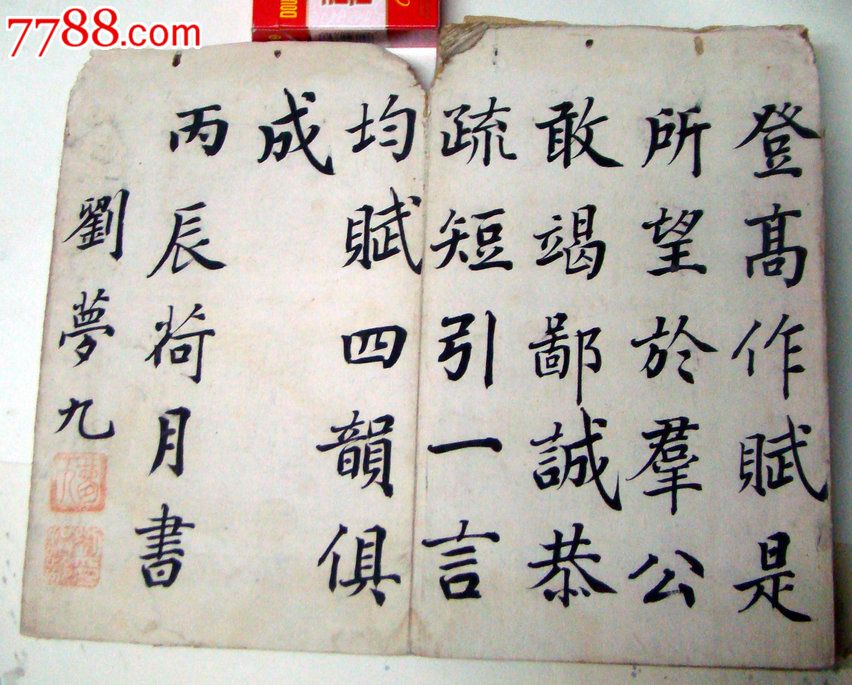 7788.com
登高作賦是
所望於羣公
敢竭鄙誠恭
疏短引一言
均賦四韻俱
成
丙辰荷月書
劉夢九